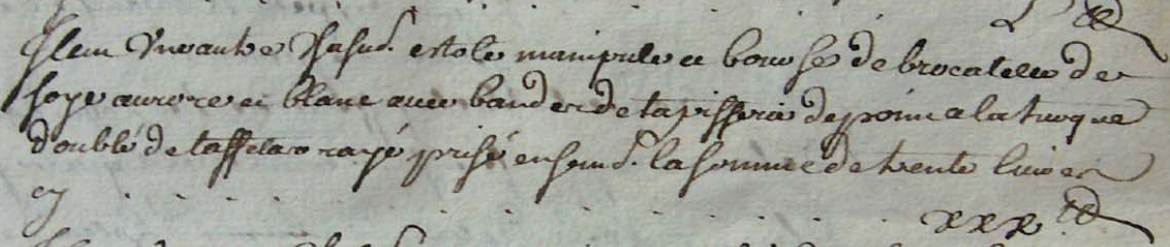 Item Une autre Chasud. estole manipule et bourse de brocatelle de
soye aurore et blanc avec bandes de tapisserie de point a la turque
doublé de taffetas rayé prisé ensemd. la somme de trente livres
cy . . . . . . . . . . xxx lt